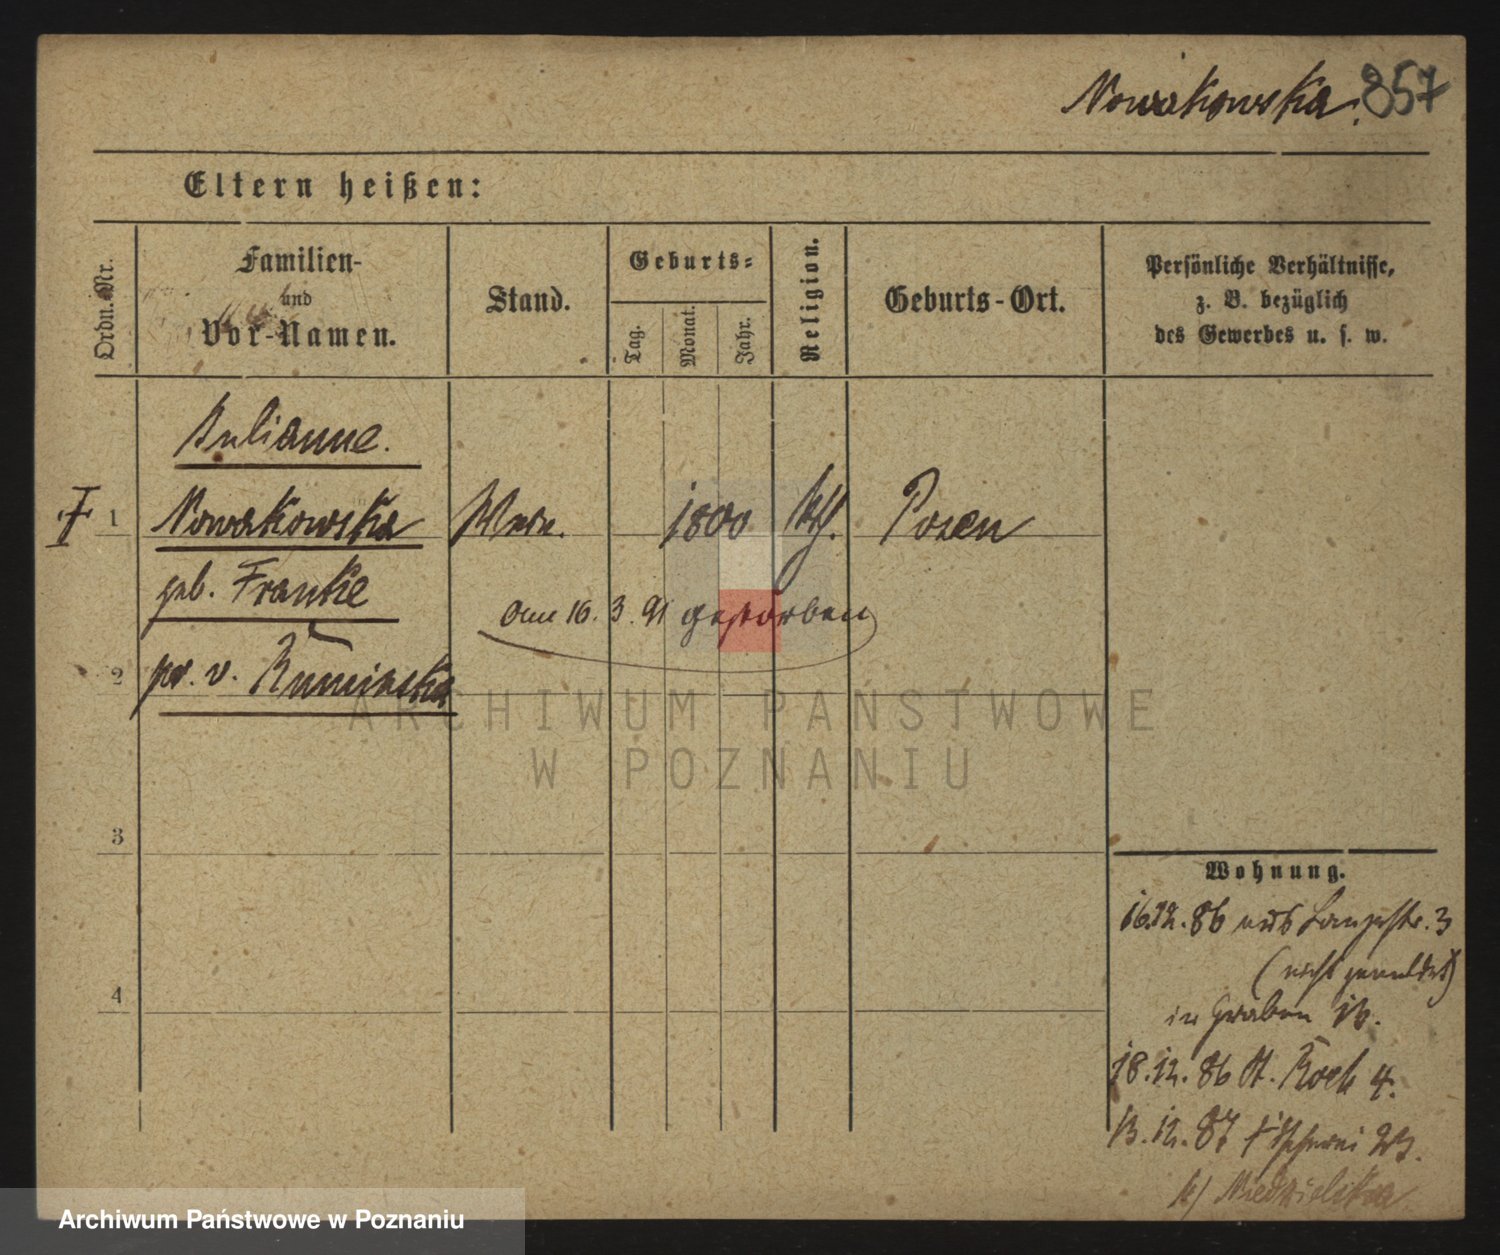 Nowakowska. 857
Eltern heißen:
Ordn. Nr.
Familien-
und
Vor-Namen.
Stand.
Geburts-
Tag.
Monat.
Jahr.
Religion.
Geburts-Ort.
Persönliche Verhältnisse,
z. B. bezüglich
des Gewerbes u. s. w.
Julianne.
1 Nowakowska Wwe. 1800 kth. Posen
geb. Franke
am 16. 3. 91 gestorben
2 pr. v. Ruminska
3
4
Wohnung.
16.12.86 aus Langestr. 3
(nicht gemeldet)
in Graben 16.
18.12.86 St. Roch 4.
13.12.87 Fischerei 23.
b/ Niedzielska
ARCHIWUM PAŃSTWOWE
W POZNANIU
Archiwum Państwowe w Poznaniu